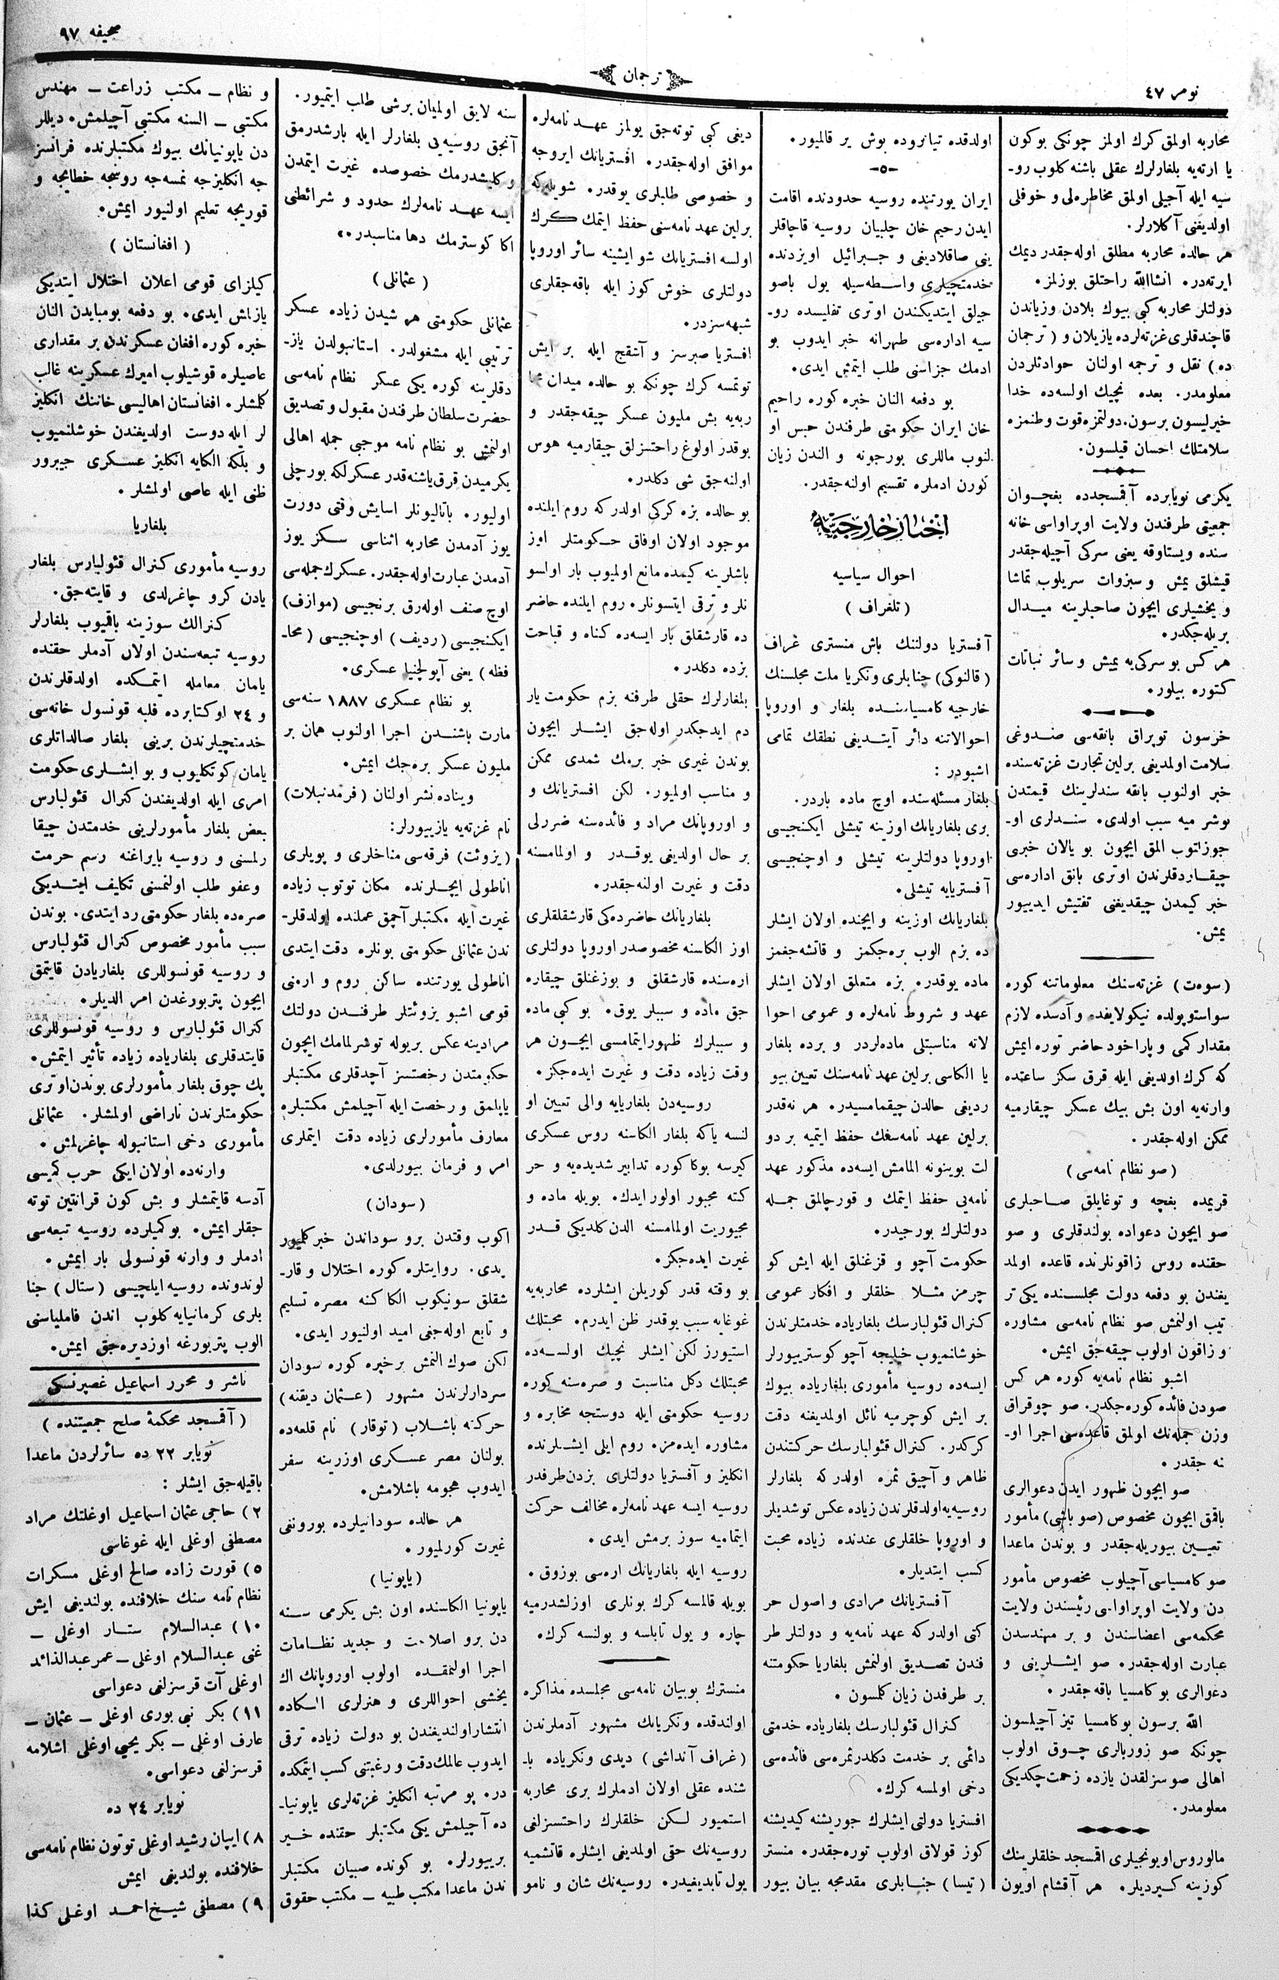 نومر ٤٧
ترجمان
صحیفه ٩٧
محاربه اولمق كرك اولمز چونكی بوكون
یا ارته‌یه بلغارلرك عقلی باشنه كلوب رو-
سیه ایله آجیلی اولمق مخاطره‌لی و خوفلی
اولدیغنی آكلارلر.
هر حالده محاربه مطلق اوله‌جقدر دیمك
ایرته‌در. انشاالله راحتلق بوزلمز.
دولتلر محاربه كبی بیوك بلادن وزیاندن
قاچندقلری غزته‌لرده یازیلان و ( ترجمان
ده ) نقل و ترجمه اولنان حوادثلردن
معلومدر. بعده نچیك اولسه‌ده خدا
خیرلیسون برسون، دولتمزه قوت و وطنمزه
سلامتلك احسان قیلسون.
یكرمی نویابرده آقمسجدده بغچوان
جمعیتی طرفندن ولایت اوپراواسی خانه
سنده ویستاوقه یعنی سركی آچیله‌جقدر
قیشلق یمش و سبزوات سریلوب تماشا
و یخشیلری ایچون صاحبلرینه میدال
بریله‌جكدر.
هر كس بو سركی‌یه یمش و سائر نباتات
كتوره بیلور.
خرسون توپراق بانقه‌سی صندوغی
سلامت اولمدیغی برلین تجارت غزته‌سنده
خبر اولنوب بانقه سندلرینك قیمتدن
توشر میه سبب اولدی. سندلری او-
جوزاتوب المق ایچون بو یالان خبری
چیقاردقلرندن اوتری بانق اداره‌سی
خبر كیمدن چیقدیغنی تفتیش ایدیبور
یمش.
( سوه‌ت ) غزته‌سنك معلوماتنه كوره
سواستوپولده نیكولایفده و آدسده لازم
مقدار كمی و پاراخود حاضر توره ایمش
كه كرك اولدیغی ایله قرق سكز ساعتده
وارنه‌یه اون بش بیك عسكر چیقارمیه
ممكن اوله‌جقدر.
( صو نظام نامه‌سی )
قریمده بغچه و توغایلق صاحبلری
صو ایچون دعواده بولندقلری و صو
حقنده روس زاقونلرنده قاعده اولمد
یغندن بو دفعه دولت مجلسنده یكی تر
تیب اولنمش صو نظام نامه‌سی مشاوره
و زاقون اولوب چیقه‌جق ایمش.
اشبو نظام نامه‌یه كوره هر كس
صودن فائده كوره‌جكدر. صو چوقراق
وزن جمله‌نك اولمق قاعده‌سی اجرا او-
نه جقدر.
صو ایچون ظهور ایدن دعوالری
باقمق ایچون مخصوص (صو باشی) مأمور
تعیین بیوریله‌جقدر و بوندن ماعدا
صو كامسیاسی آچیلوب مخصوص مأمور
دن ولایت اوپراواسی رئیسندن ولایت
محكمه‌سی اعضاسندن و بر مهندسدن
عبارت اوله‌جقدر. صو ایشلرینی و
دعوالری بو كامسیا باقه‌جقدر.
الله برسون بو كامسیا تیز آچیلسون
چونكه صو زورپالری چوق اولوب
اهالی صوسزلقدن یازده زحمت چكدیكی
معلومدر.
مالوروس اویونجیلری اقمسجد خلقلرینك
كوزینه كیردیلر. هر آقشام اویون
اولدقده تیاترو‌ده بوش یر قالمیور.
ایران یورتنده روسیه حدودنده اقامت
ایدن رحیم خان چلبیان روسیه قاچاقلر
ینی صاقلادیغی و جبرائیل اویزدنده
خدمتچیلری واسطه‌سیله یول باصو
جیلق ایتدیكندن اوتری تفلیسده رو-
سیه اداره‌سی طهرانه خبر ایدوب بو
ادمك جزاسنی طلب ایتمش ایدی.
بو دفعه النان خبره كوره راحیم
خان ایران حكومتی طرفندن حبس او
لنوب ماللری بورجونه و الندن زیان
كورن ادملره تقسیم اولنه‌جقدر.
اخبار خارجیه
احوال سیاسیه
( تلغراف )
آفستریا دولتنك باش منستری غراف
( قالنوكی ) جنابلری ونكریا ملت مجلسنك
خارجیه كامسیاسنده بلغار و اوروپا
احوالاتنه دائر آیتدیغی نطقك تمامی
اشبودر :
بلغار مسئله‌سنده اوچ ماده باردر.
بری بلغاریانك اوزینه تیشلی ایكنجیسی
اوروپا دولتلرینه تیشلی و اوچنجیسی
آفستریایه تیشلی.
بلغاریانك اوزینه و ایچنده اولان ایشلر
ده بزم الوب بره‌جكمز و قاتشه‌جغمز
ماده یوقدر. بزه متعلق اولان ایشلر
عهد و شروط نامه‌لره و عمومی احوا
لاته مناسبتلی ماده‌لردر و برده بلغار
یا الكاسی برلین عهد نامه‌سنك تعیین بیو
ردیغی حالدن چیقمامسیدر. هر نه‌قدر
برلین عهد نامه‌سنك حفظ ایتمیه بر دو
لت بوینونه المامش ایسه‌ده مذكور عهد
نامه‌یی حفظ ایتمك و قورچالمق جمله
دولتلرك بورجیدر.
حكومت آچو و قزغنلق ایله ایش كو
چرمز مثلا خلقلر و افكار عمومی
كنرال قئولبارسك بلغاریاده خدمتلرندن
خوشلانمیوب خیلیجه آچو كوستریبورلر
ایسه‌ده روسیه مأموری بلغاریاده بیوك
بر ایش كوچرمیه نائل اولمدیغنه دقت
كركدر. كنرال قئولبارسك حركتندن
ظاهر و آچیق ثمره اولدركه بلغارلر
روسیه‌یه اولدقلرندن زیاده عكس توشدیلر
و اوروپا خلقلری عندنده زیاده محبت
كسب ایتدیلر.
آفستریانك مرادی و اصول حر
كتی اولدركه عهد نامه‌یه و دولتلر طر
فندن تصدیق اولنمش بلغاریا حكومتنه
بر طرفدن زیان كلمسون.
كنرال قئولبارسك بلغاریاده خدمتی
دائمی بر خدمت دكلدر ثمره‌سی فائده‌سی
دخی اولمسه كرك.
افستریا دولتی ایشلرك جوریشنه كیدیشنه
كوز قولاق اولوب توره‌جقدر. منستر
( تیسا ) جنابلری مقدمجه بیان بیور
دیغی كبی توته‌جق یولمز عهد نامه‌لره
موافق اوله‌جقدر. افستریانك ایروجه
و خصوصی طابلری یوقدر. شویله‌كه
برلین عهد نامه‌سنی حفظ ایتمك كرك
اولسه افستریانك شو ایشینه سائر اوروپا
دولتلری خوش كوز ایله باقه‌جقلری
شبهه‌سزدر.
افستریا صبرسز و آشقچ ایله بر ایش
توتمسه كرك چونكه بو حالده میدان محا
ربه‌یه بش ملیون عسكر چیقه‌جقدر و
بوقدر اولوغ راحتسزلق چیقارمیه هوس
اولنه‌جق شی دكلدر.
بو حالده بزه كركی اولدر كه روم ایلنده
موجود اولان اوفاق حكومتلر اوز
باشلرینه كیمده مانع اولمیوب بار اولسو
نلر و ترقی ایتسونلر. روم ایلنده حاضر
ده قارشقلق بار ایسه‌ده كناه و قباحت
بزده دكلدر.
بلغارلرك حقلی طرفنه بزم حكومت یار
دم ایدجكدر اوله‌جق ایشلر ایچون
بوندن غیری خبر برمك شمدی ممكن
و مناسب اولمیور. لكن افستریانك و
و اوروپانك مراد و فائده‌سنه ضررلی
بر حال اولدیغی یوقدر و اولمامسنه
دقت و غیرت اولنه‌جقدر.
بلغاریانك حاضرده‌كی قارشقلقلری
اوز الكاسنه مخصوصدر اوروپا دولتلری
اره‌سنده قارشقلق و بوزغنلق چیقاره
جق ماده و سببلر یوق. بو كبی ماده
و سببلرك ظهور ایتمامسی ایچون هر
وقت زیاده دقت و غیرت ایده‌جكز.
روسیه‌دن بلغاریایه والی تعیین او
لنسه یاكه بلغار الكاسنه روس عسكری
كیرسه بوكا كوره تدابیر شدیده‌یه و حر
كته مجبور اولور ایدك. بویله ماده و
مجبوریت اولمامسنه الدن كلدیكی قدر
غیرت ایده‌جكز.
بو وقته قدر كوریلن ایشلرده محاربه‌یه
غوغایه سبب یوقدر ظن ایدرم. محبتلك
استیورز لكن ایشلر نچیك اولسه‌ده
محبتلك دكل مناسبت و صره‌سنه كوره
روسیه حكومتی ایله دوستجه مخابره و
مشاوره ایده‌مز. روم ایلی ایشلرنده
انكلیز و آفستریا دولتلری بزدن طرفدر
روسیه ایسه عهد نامه‌لره مخالف حركت
ایتمامیه سوز برمش ایدی.
روسیه ایله بلغاریانك اره‌سی بوزوق.
بویله قالمسه كرك بونلری اوزلشدرمیه
چاره و یول تابلسه و بولنسه كرك.
منسترك بو بیان نامه‌سی مجلسده مذاكره
اولندقده ونكریانك مشهور آدملرندن
( غراف آنداشی ) دیدی ونكریاده با-
شنده عقلی اولان ادملرك بری محاربه
استمیور لكن خلقلرك راحتسزلغی
روسیه‌نك حقی اولمدیغی ایشلره قاتشمیه
یول تابدیغیدر. روسیه‌نك شان و نامو
سنه لایق اولمیان برشی طلب ایتمیور.
آنجق روسیه‌یی بلغارلر ایله بارشدرمق
و كلیشدرمك خصوصده غیرت ایتمدن
ایسه عهد نامه‌لرك حدود و شرائطنی
اكا كوسترمك دها مناسبدر.
( عثمانلی )
عثمانلی حكومتی هر شیدن زیاده عسكر
ترتیبی ایله مشغولدر. استانبولدن یاز-
دقلرینه كوره یكی عسكر نظام نامه‌سی
حضرت سلطان طرفندن مقبول و تصدیق
اولنمش بو نظام نامه موجبی جمله اهالی
یكرمیدن قرق یاشنه قدر عسكرلكه بورچلی
اولیور. باتالیونلر اسایش وقتی دورت
یوز آدمدن محاربه اثناسی سكز یوز
آدمدن عبارت اوله‌جقدر. عسكرك جمله‌سی
اوچ صنف اوله‌رق برنجیسی ( موازف )
ایكنجیسی ( ردیف ) اوچنجیسی ( محا-
فظه ) یعنی آپولچنیا عسكری.
بو نظام عسكری ١٨٨٧ سنه‌سی
مارت باشندن اجرا اولنوب همان بر
ملیون عسكر بره‌جك ایمش.
ویناده نشر اولنان ( فرمدنبلات )
نام غزته‌یه یازیبورلر:
( یزوئت ) فرقه‌سی مناخلری و پوپلری
اناطولی ایچلرنده مكان توتوب زیاده
غیرت ایله مكتبلر آچمق عملنده اولدقلر-
ندن عثمانلی حكومتی بونلره دقت ایتدی
اناطولی یورتنده ساكن روم و ارمنی
قومی اشبو یزوئتلر طرفندن دولتك
مرادینه عكس بریوله توشرلمامك ایچون
حكومتدن رخصتسز آچدقلری مكتبلر
یابلمق و رخصت ایله آچیلمش مكتبلره
معارف مأمورلری زیاده دقت ایتملری
امر و فرمان بیورلدی.
( سودان )
اكوب وقتدن برو سوداندن خبر كلمیور
یدی. روایتلره كوره اختلال و قار-
شقلق سونیكوب الكا كنه مصره تسلیم
و تابع اوله‌جغی امید اولنیور ایدی.
لكن صوك النمش بر خبره كوره سودان
سردارلرندن مشهور ( عثمان دیقنه )
حركته باشلاب ( توقار ) نام قلعه‌ده
بولنان مصر عسكری اوزرینه سفر
ایدوب هجومه باشلامش.
هر حالده سودانیلرده بورونغی
غیرت كورلمیور.
( یاپونیا )
یاپونیا الكاسنده اون بش یكرمی سنه
دن برو اصلاحت و جدید نظامات
اجرا اولنمقده اولوب اوروپانك اك
یخشی احواللری و هنرلری الكاده
انتشار اولندیغندن بو دولت زیاده ترقی
ایدوب عالمك دقت و رغبتنی كسب ایتمكده
در. بو مرتبه انكلیز غزته‌لری یاپونیا-
ده آچیلمش یكی مكتبلر حقنده خبر
بریبورلر. بو كونده صبیان مكتبلر
ندن ماعدا مكتب طبیه — مكتب حقوق
و نظام — مكتب زراعت — مهندس
مكتبی — السنه مكتبی آچیلمش. دیللر
دن یاپونیانك بیوك مكتبلرنده فرانسز
جه انكلیزجه نمسه‌جه روسجه خطایجه و
قوریجه تعلیم اولنیور ایمش.
( افغانستان )
كیلزای قومی اعلان اختلال ایتدیكی
یازلمش ایدی. بو دفعه بومبایدن النان
خبره كوره افغان عسكرندن بر مقداری
عاصیلره قوشیلوب امیرك عسكرینه غالب
كلمشلر. افغانستان اهالیسی خاننك انكلیز
لر ایله دوست اولدیغندن خوشلنمیوب
و بلكه الكایه انكلیز عسكری جیبرور
ظنی ایله عاصی اولمشلر.
بلغاریا
روسیه مأموری كنرال قئولبارس بلغار
یادن كرو چاغرلدی و قایته‌جق.
كنرالك سوزینه باقمیوب بلغارلر
روسیه تبعه‌سندن اولان آدملر حقنده
یامان معامله ایتمكده اولدقلرندن
و ٢٤ اوكتابرده فلبه قونسول خانه‌سی
خدمتچیلرندن برینی بلغار صالداتلری
یامان كوتكلیوب و بو ایشلری حكومت
امری ایله اولدیغندن كنرال قئولبارس
بعض بلغار مأمورلرینی خدمتدن چیقا
رلمسنی و روسیه بایراغنه رسم حرمت
وعفو طلب اولنمسنی تكلیف ایتدیكی
صره‌ده بلغار حكومتی رد ایتدی. بوندن
سبب مأمور مخصوص كنرال قئولبارس
و روسیه قونسوللری بلغاریادن قایتمق
ایچون پتربورغدن امر الدیلر.
كنرال قئولبارس و روسیه قونسوللری
قایتدقلری بلغاریاده زیاده تأثیر ایتمش.
پك چوق بلغار مأمورلری بوندن اوتری
حكومتلرندن ناراضی اولمشلر. عثمانلی
مأموری دخی استانبوله چاغرلمش.
وارنه‌ده اولان ایكی حرب كمیسی
آدسه قایتمشلر و بش كون قرانتین توته
جقلر ایمش. بو كمیلرده روسیه تبعه‌سی
ادملر و وارنه قونسولی بار ایمش.
لوندونده روسیه ایلچیسی ( ستال ) جنا
بلری كرمانیایه كلوب اندن فاملیاسنی
الوب پتربورغه اوزدیره‌جق ایمش.
ناشر و محرر اسماعیل غصپرنسكی
( آقمسجد محكمۀ صلح جمعیتنده )
نویابر ٢٢ ده سائرلردن ماعدا
باقیله‌جق ایشلر :
٢) حاجی عثمان اسماعیل اوغلنك مراد
مصطفی اوغلی ایله غوغاسی
٥) قورت زاده صالح اوغلی مسكرات
نظام نامه سنك خلافنده بولندیغی ایش
١٠) عبدالسلام ستار اوغلی —
غنی عبدالسلام اوغلی — عمر عبدالذائد
اوغلی آت قرسزلغی دعواسی
١١) بكر نبی بوری اوغلی — عثمان —
عارف اوغلی — بكر یحیی اوغلی اشلامه
قرسزلغی دعواسی.
نویابر ٢٤ ده
٨) ایپان رشید اوغلی توتون نظام نامه‌سی
خلافنده بولندیغی ایمش
٩) مصطفی شیخ احمد اوغلی كذا